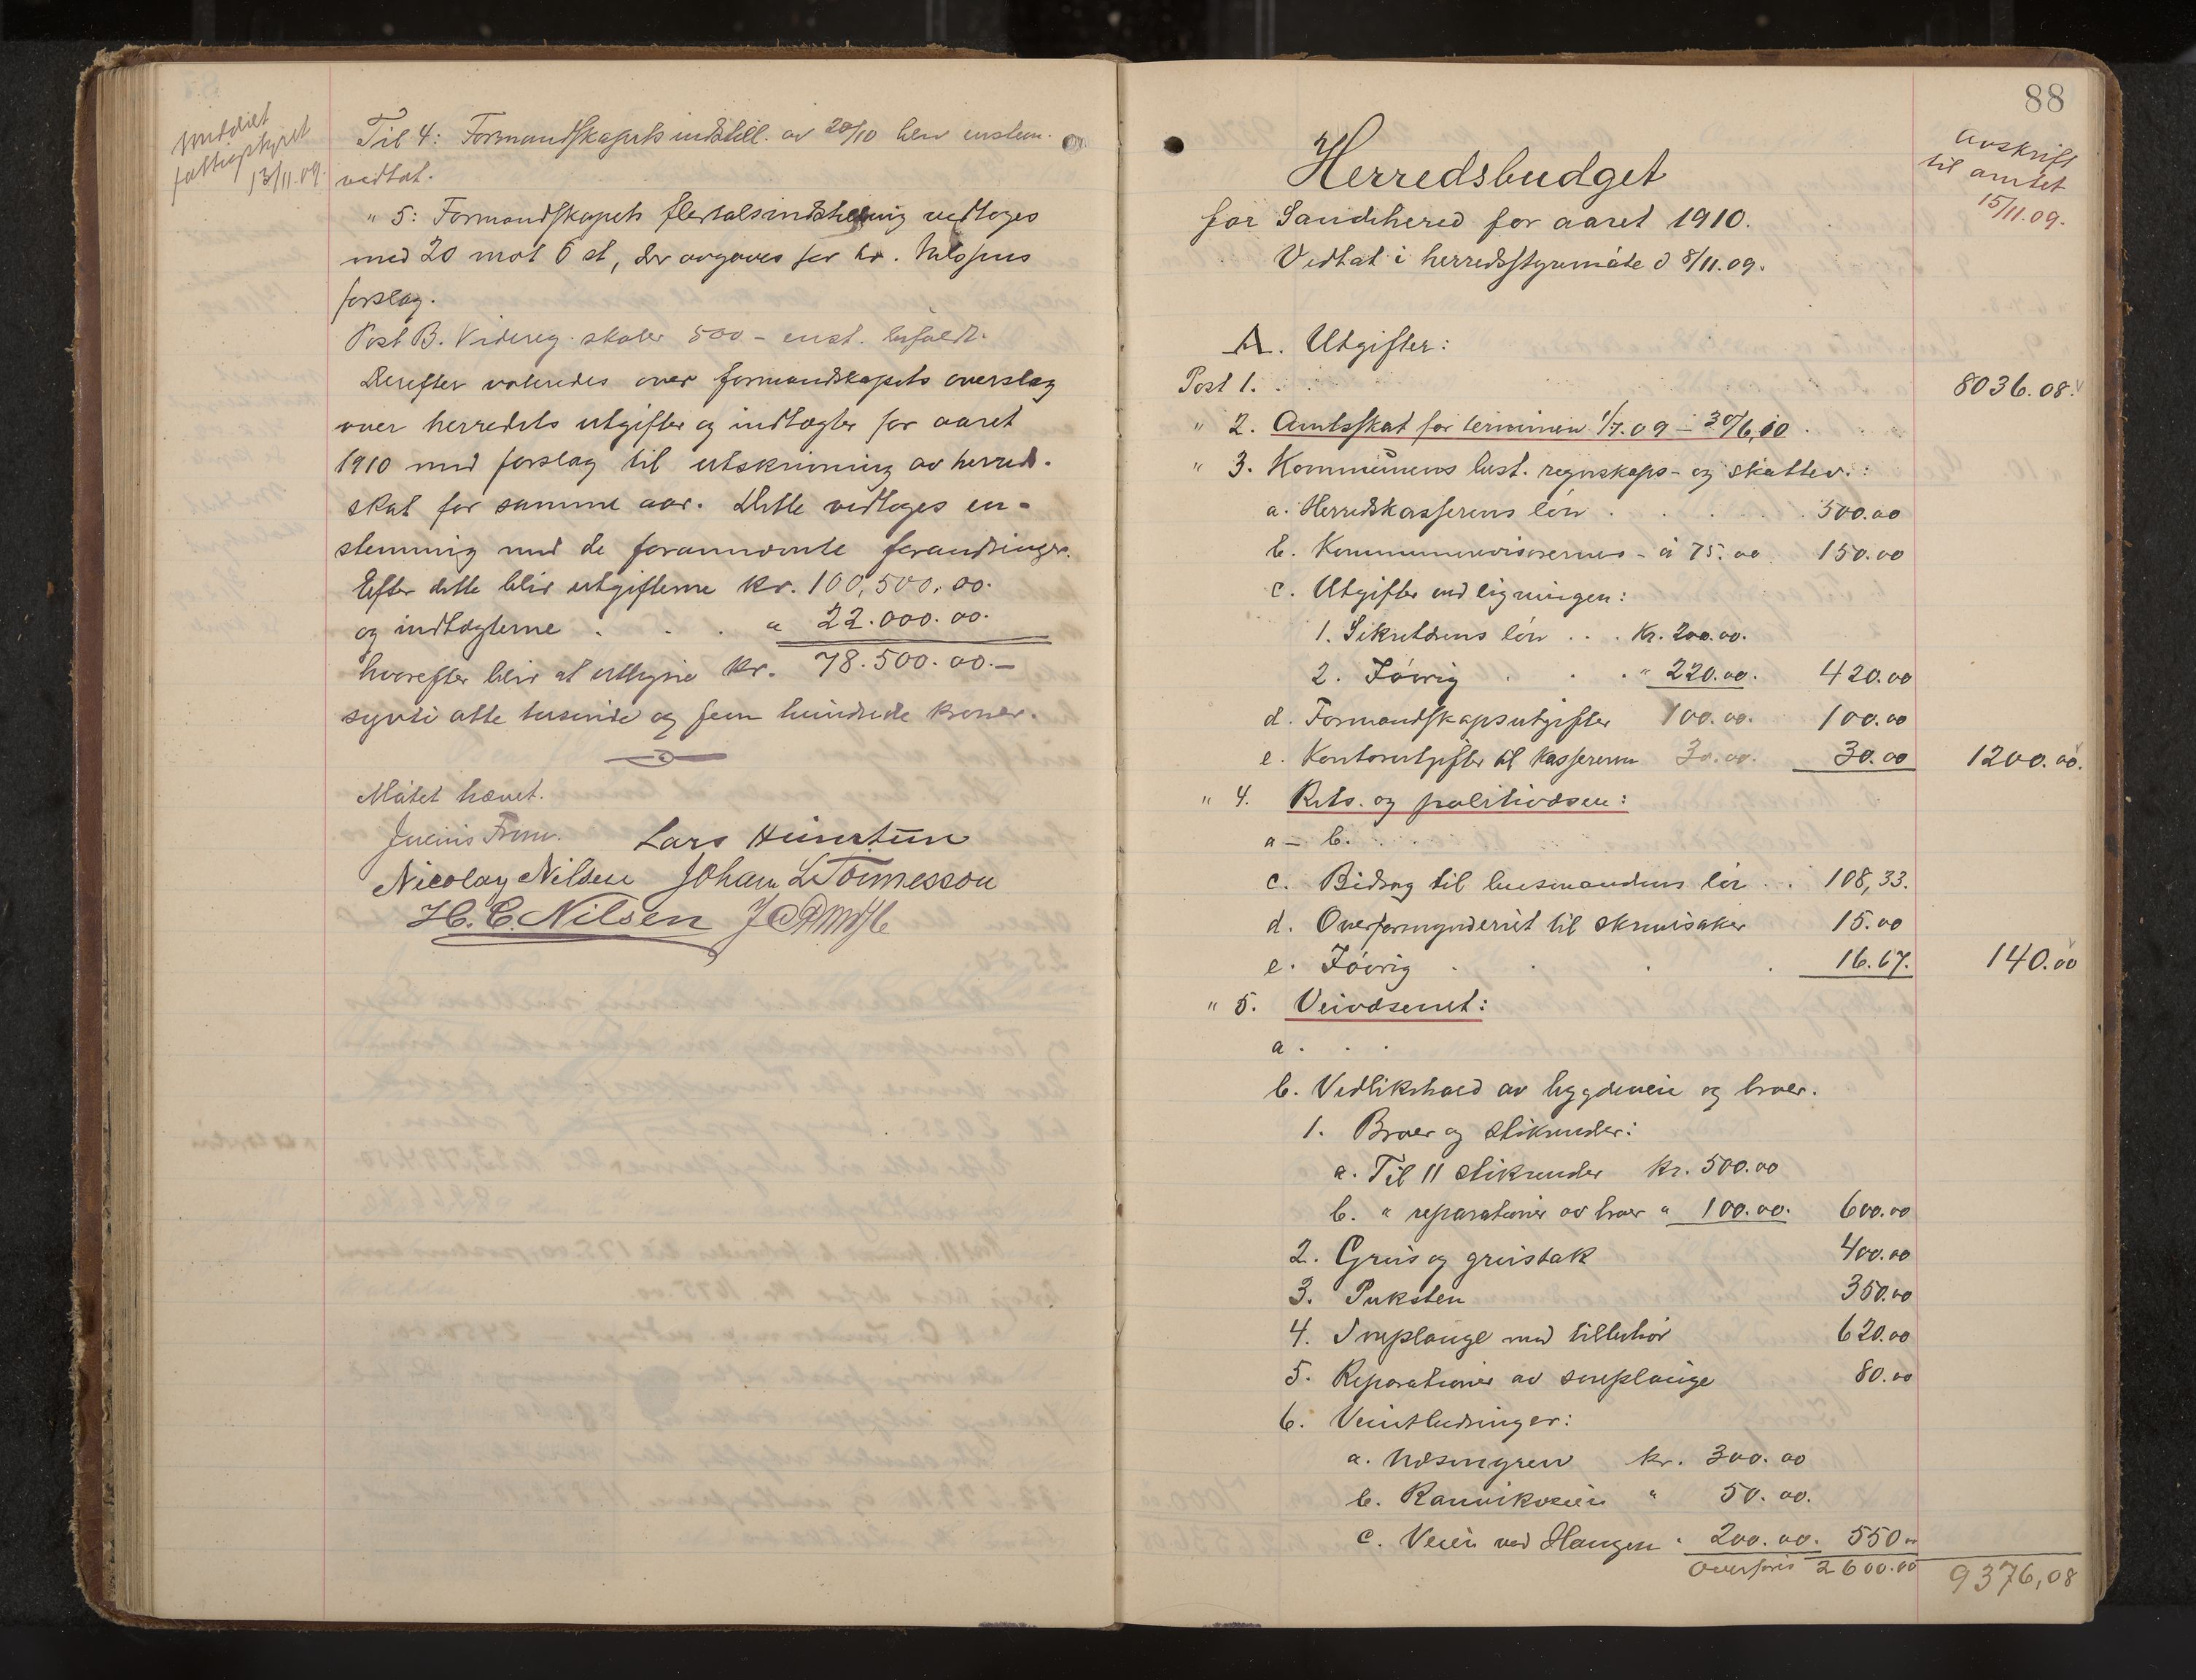 meddelt
fattigstyret
13/11.09.
Til 4: Formandskapets indstill. av 20/10 blev enstem.
vedtat.
" 5: Formandskapets flertalsindstilling vedtoges
med 20 mot 6 st, der avgaves for hr. Nilsens
forslag.
Post B. Videreg. skoler 500 - enst. bifaldt.
Derefter voteredes over formandskapets overslag
over herredets utgifter og indtægter for aaret
1910 med forslag til utskrivning av herreds-
skat for samme aar. Dette vedtoges en-
stemmig med de forannævnte forandringer.
Efter dette blir utgifterne kr. 100,500.00.
og indtægterne . . . " 22.000.00.
hvorefter blir at utligne kr. 78.500.00.—
sytti otte tusinde og fem hundrede kroner.
Møtet hævet.
Lars Heiertun
Nicolay Nilsen Johan L Tonnesson
H. C. Nilsen
88
Avskrift
til amtet
15/11.09.
Herredsbudget
for Sandehered for aaret 1910.
Vedtat i herredsstyremøte d 8/11.09.
A. Utgifter:
Post 1. . . 8036.08.
" 2. Amtsskat for terminen 1/7.09 — 30/6.10 .
" 3. Kommunens best. regnskaps- og skattev.:
a. Herredskasserens løn . . . . 500.00
b. Kommunerevisorernes - á 75.00 150.00
c. Utgifter ved ligningen:
1. Sekretærens løn . . . Kr. 200.00.
2. Iøvrig . . . " 220.00. 420.00
d. Formandskapsutgifter 100.00. 100.00
e. Kontorutgifter til kassereren 30.00. 30.00 1200.00.
" 4. Rets. og politivæsen:
a — b. . . .
c. Bidrag til lensmandens løn . . 108,33.
d. Overformynderiet til skrivesaker 15.00
e. Iøvrig . . . . 16.67. 140.00
" 5. Veivæsenet:
a . . .
b. Vedlikehold av bygdeveie og broer.
1. Broer og stikrender:
a. Til 11 stikrender Kr. 500.00
b. " reparationer av broer " 100.00. 600.00
2. Grus og grustak 400.00
3. Puksten 350.00
4. Sneplouge med tilbehør 620.00
5. Reparationer av sneplouge 80.00
6. Veiutbedringer:
a. Næsmyren kr. 300.00
b. Rannikveien " 50.00.
c. Veien ved Haugen " 200.00. 550 00
Overføres 2600.00 9376,08